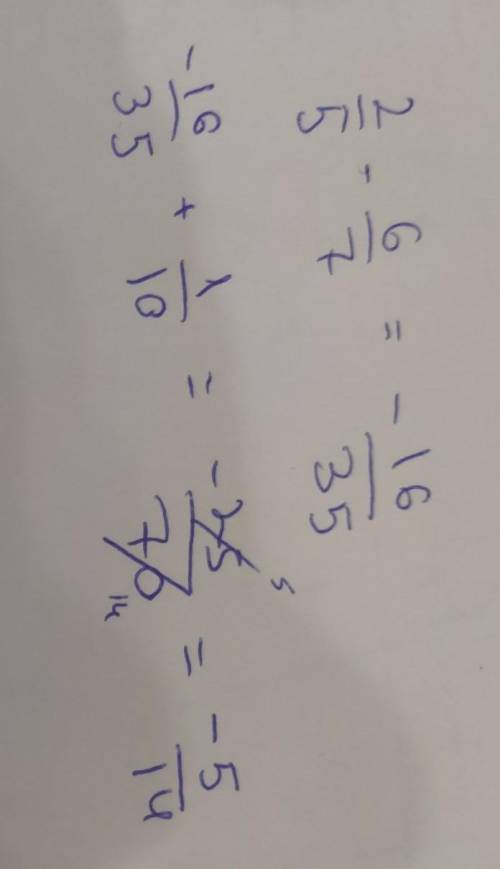 2/5 - 6/7 = -16/35
-16/35 + 1/10 = -25/70 5 14 = -5/14